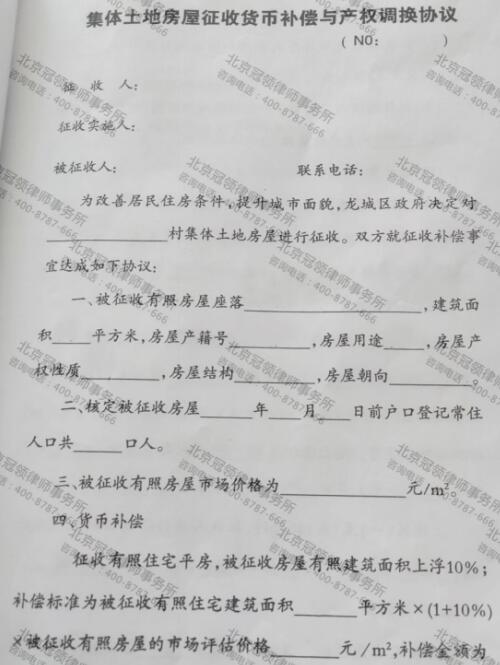 集体土地房屋征收货币补偿与产权调换协议
( NO: )
征 收 人:
征收实施人:
被征收人: 联系电话:
为改善居民住房条件,提升城市面貌,龙城区政府决定对
____________村集体土地房屋进行征收。双方就征收补偿事
宜达成如下协议:
一、被征收有照房屋座落____________,建筑面
积____平方米,房屋产籍号________,房屋用途____,房屋产
权性质________,房屋结构________,房屋朝向________。
二、核定被征收房屋_____年___月___日前户口登记常住
人口共_____口人。
三、被征收有照房屋市场价格为____________元/m²。
四、货币补偿
征收有照住宅平房,被征收房屋有照建筑面积上浮10%;
补偿标准为被征收有照住宅建筑面积______平方米×(1+10%)
×被征收有照房屋的市场评估价格______元/m²,补偿金额为
北京冠领律师事务所
咨询电话:400-8787-666